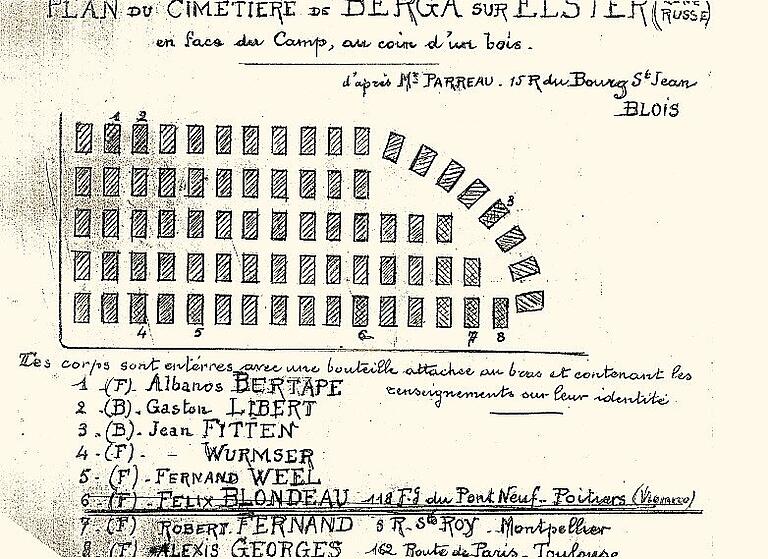 PLAN DU CIMETIERE DE BERGA SUR ELSTER (ZONE RUSSE)
en face du Camp, au coin d'un bois.
d'après Mr PARREAU. 15 R du Bourg St Jean
BLOIS
1 2
3
4 5 6 7 8
Les corps sont entérrés avec une bouteille attachée au bras et contenant les
renseignements sur leur identité
1 - (F). Albanos BERTAPE
2 - (B). Gaston LIBERT
3 - (B). Jean FITTEN
4 - (F). - WURMSER
5 - (F) - FERNAND WEEL
6 - (F) - FELIX BLONDEAU 118 Fg du Pont Neuf - Poitiers (Vienne)
7 - (F) ROBERT FERNAND 8 R. Ste ROY - Montpellier
8 (F) ALEXIS GEORGES 162 Route de Paris - Toulouse